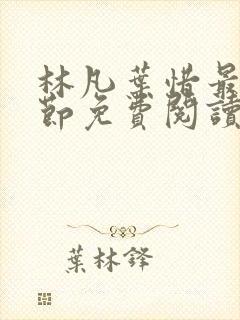 林凡葉惜最
節免費閱讀
葉林鋒